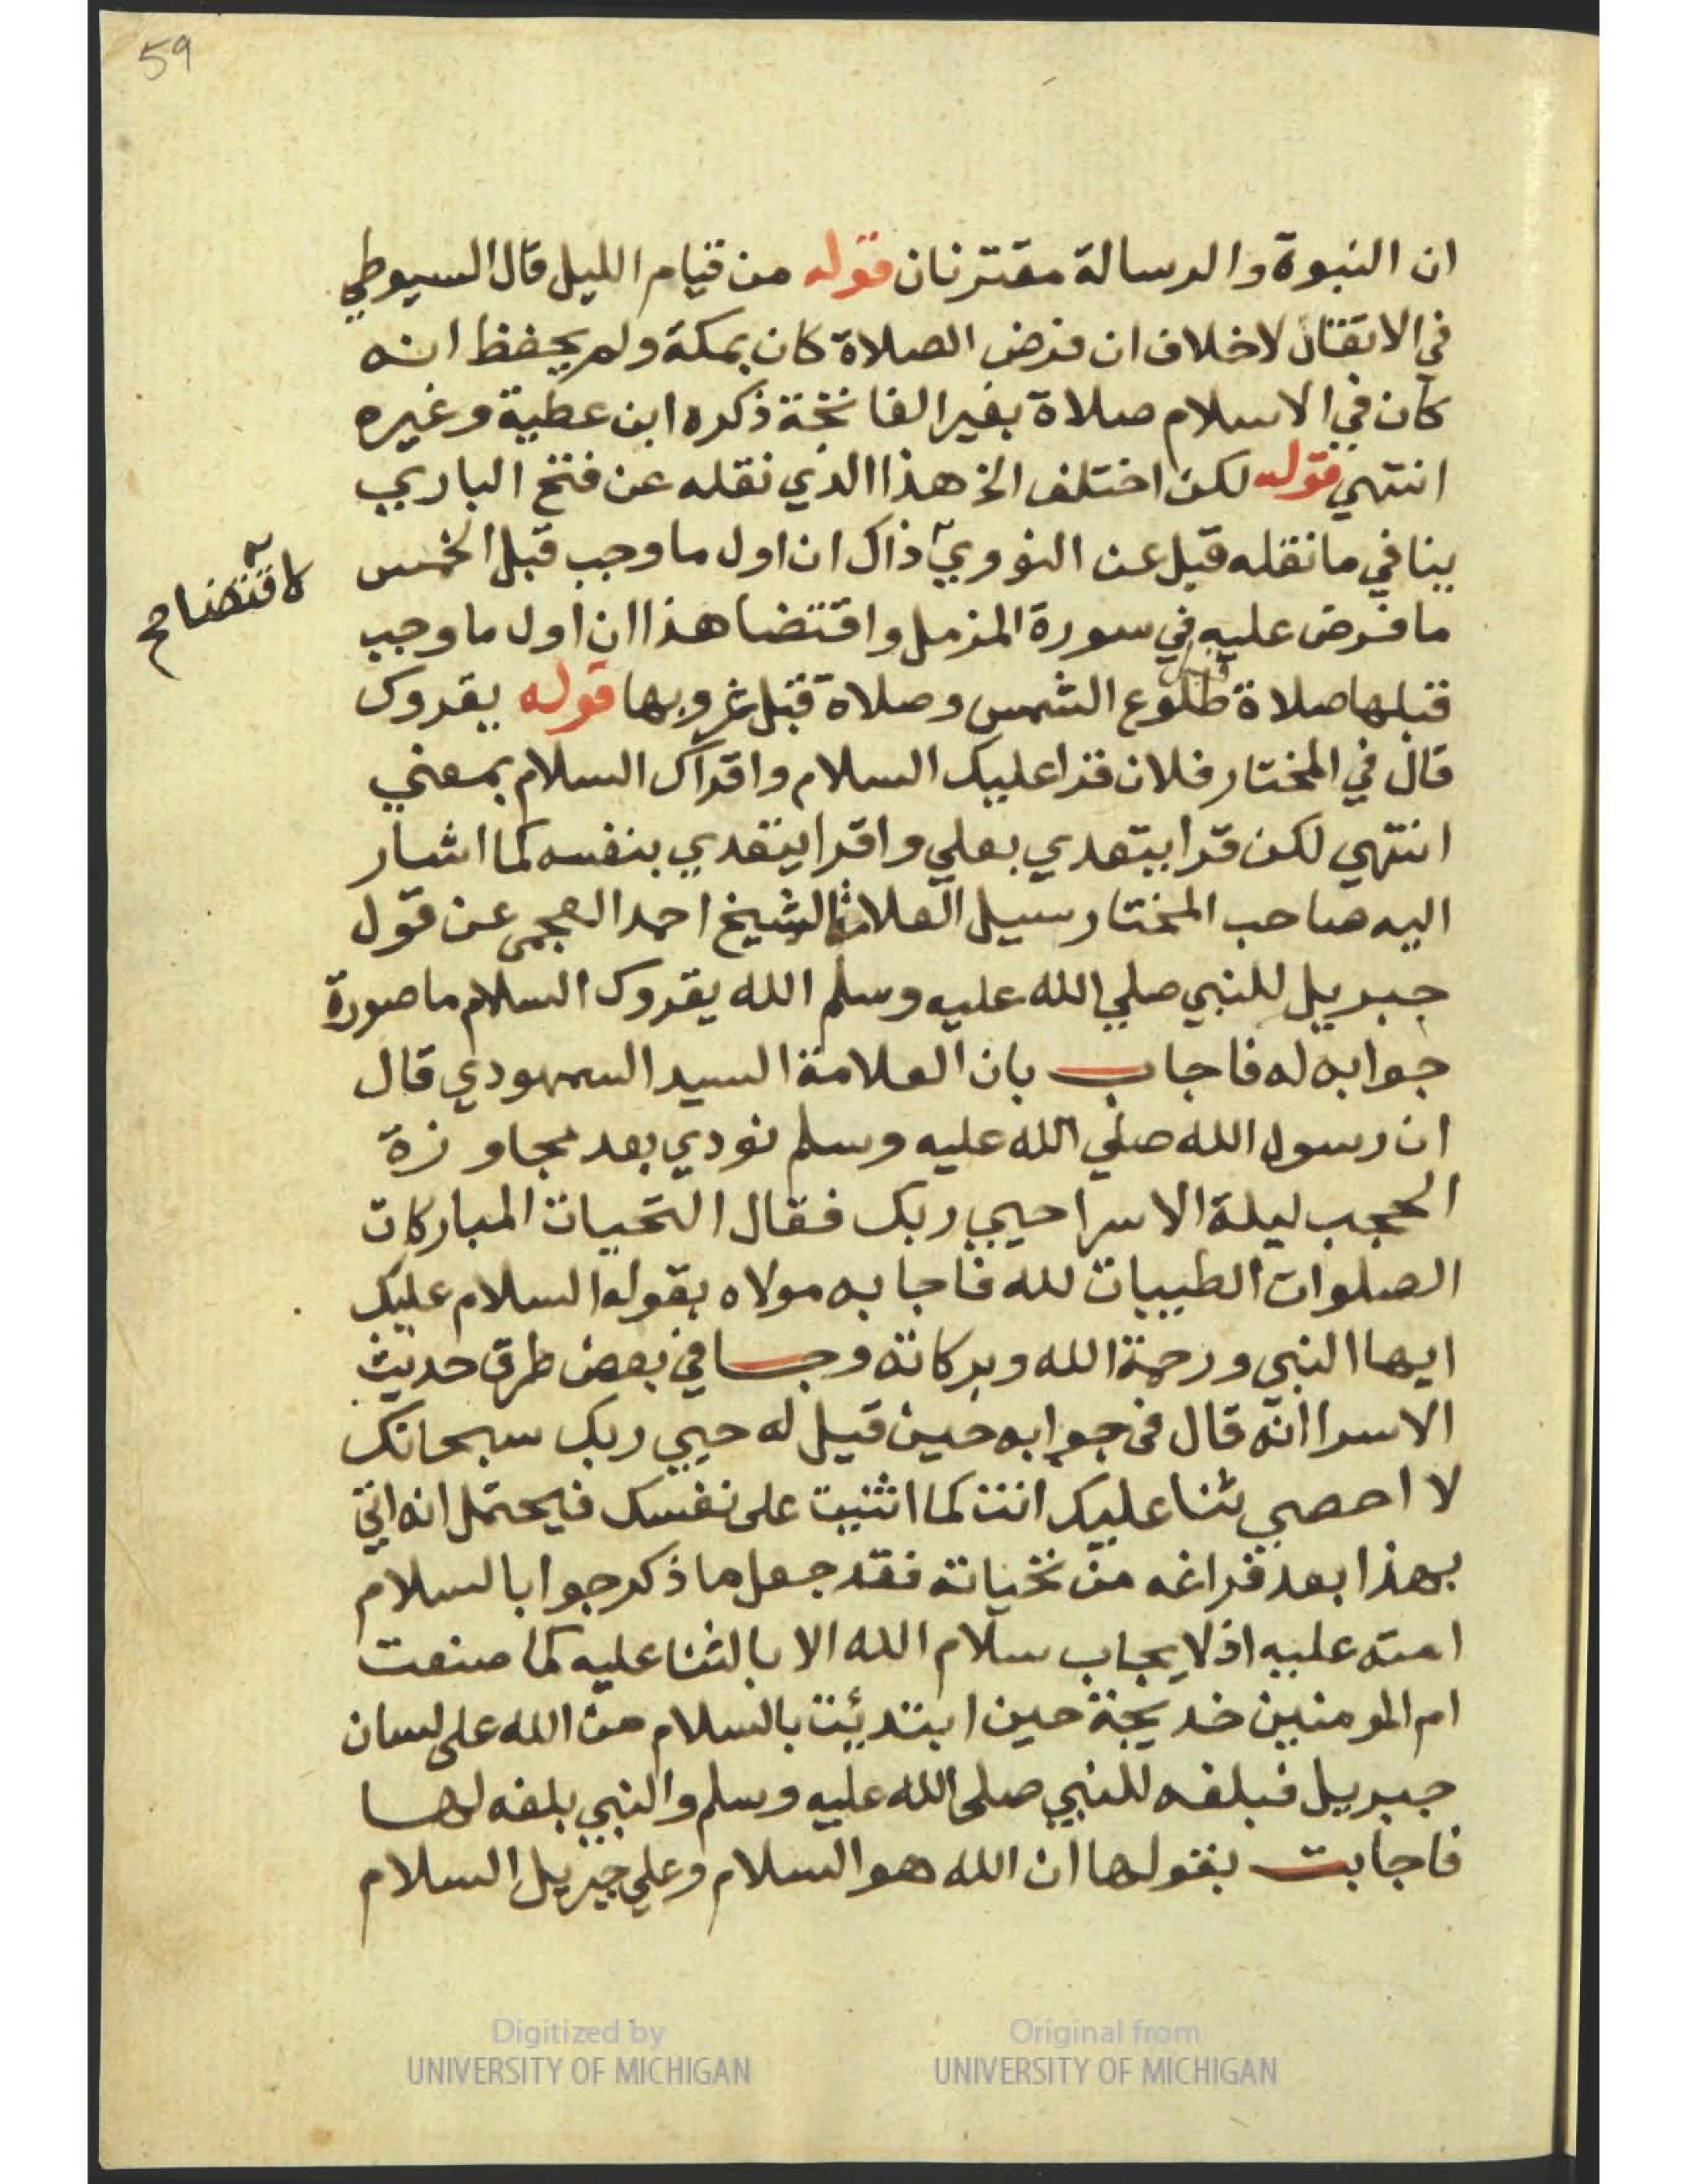 59
ان النبوة والرسالة مقترنان قوله من قيام الليل قال السيوطي
في الاتقان لا خلاف ان فرض الصلاة كان بمكة ولم يحفظ انه
كان في الاسلام صلاة بغير الفاتحة ذكره ابن عطية وغيره
انتهي قوله لكن اختلف الخ هذا الذي نقله عن فتح الباري
ينافي ما نقله قبل عن النووي ذاك ان اول ما وجب قبل الخمس
لاقتضا صح
ما فرض عليه في سورة المزمل واقتضا هذا ان اول ما وجب
قبلها صلاة قبل طلوع الشمس وصلاة قبل غروبها قوله يقروك
قال في المختار فلان قرا عليك السلام واقراك السلام بمعني
انتهي لكن قرا يتعدي بعلي واقرا يتعدي بنفسه كما اشار
اليه صاحب المختار سيل العلامة الشيخ احمد العجمي عن قول
جبريل للنبي صلي الله عليه وسلم الله يقروك السلام ما صورة
جوابه له فاجاب بان العلامة السيد السمهودي قال
ان رسول الله صلي الله عليه وسلم نودي بعد مجاوزة
الحجب ليلة الاسرا حيي ربك فقال التحيات المباركات
الصلوات الطيبات لله فاجابه مولاه بقوله السلام عليك
ايها النبي ورحمة الله وبركاته وجا في بعض طرق حديث
الاسرا انه قال في جوابه حين قيل له حيي ربك سبحانك
لا احصي ثنا عليك انت كما اثنيت على نفسك فيحتمل انه اتي
بهذا بعد فراغه من تحياته فقد جعل ما ذكر جوابا لسلام
امته عليه اذ لا يجاب سلام الله الا بالثنا عليه كما صنعت
ام المومنين خديجة حين ابتدئت بالسلام من الله على لسان
جبريل فبلغه للنبي صلى الله عليه وسلم والنبي بلغه لها
فاجابت بقولها ان الله هو السلام وعلي جبريل السلام
Digitized by
UNIVERSITY OF MICHIGAN
Original from
UNIVERSITY OF MICHIGAN